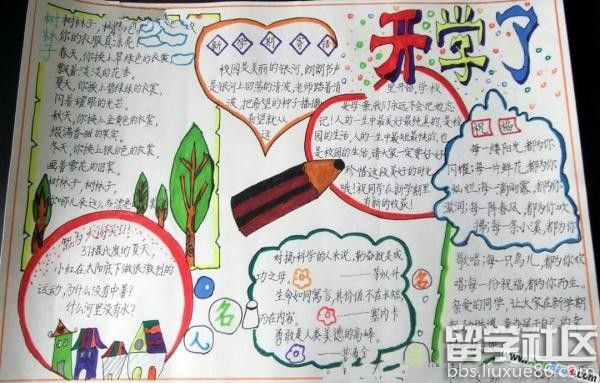 树林子
树林子，
你的衣服真漂亮
春天，你换上翠绿色的衣裳
飘着淡淡的花香。
夏天，你换上碧绿色的衣裳
闪着耀眼的光芒。
秋天，你换上金黄色的衣裳
缀满香甜的果实。
冬天，你换上银白色的衣裳
画着雪花的图案。
树林子，树林子，
新学期寄语
校园是美丽的银河，朗朗书声
是银河上回荡的清波，老师踏着清
波，把希望的种子播撒
希望就从
这
里开始，学校
是母亲，我们永远不会把她忘
记！人的一生中最美好最纯真的是校
园的生活，人的一生中最短最快的，也
是校园的生活，请大家一定要好好
珍惜这段美好的时光
哦！祝同学在新学期里
有新的收获！
开学了
祝福
每一缕阳光，都为你
闪耀；每一片鲜花，都为你
灿烂；每一滴雨露，都为你
滋润；每一阵春风，都为你吹
拂；每一条小溪，都为你
歌唱；每一只鸟儿，都为你欢
唱；每一份祝福，都为你而生。
亲爱的同学，让大家在新学期
智力大闯关！！
引摄氏度的夏天，
小红在太阳底下做激烈的
运动，为什么没有中暑？
什么河里没有水？
名人名
对搞科学的人来说，勤奋就是成
功之母。
——茅以升
生命如同寓言，其价值不在长短
而在内容。
——塞内卡
勇敢是人类美德的高峰。
留学社区
bbs.liuxue86.com